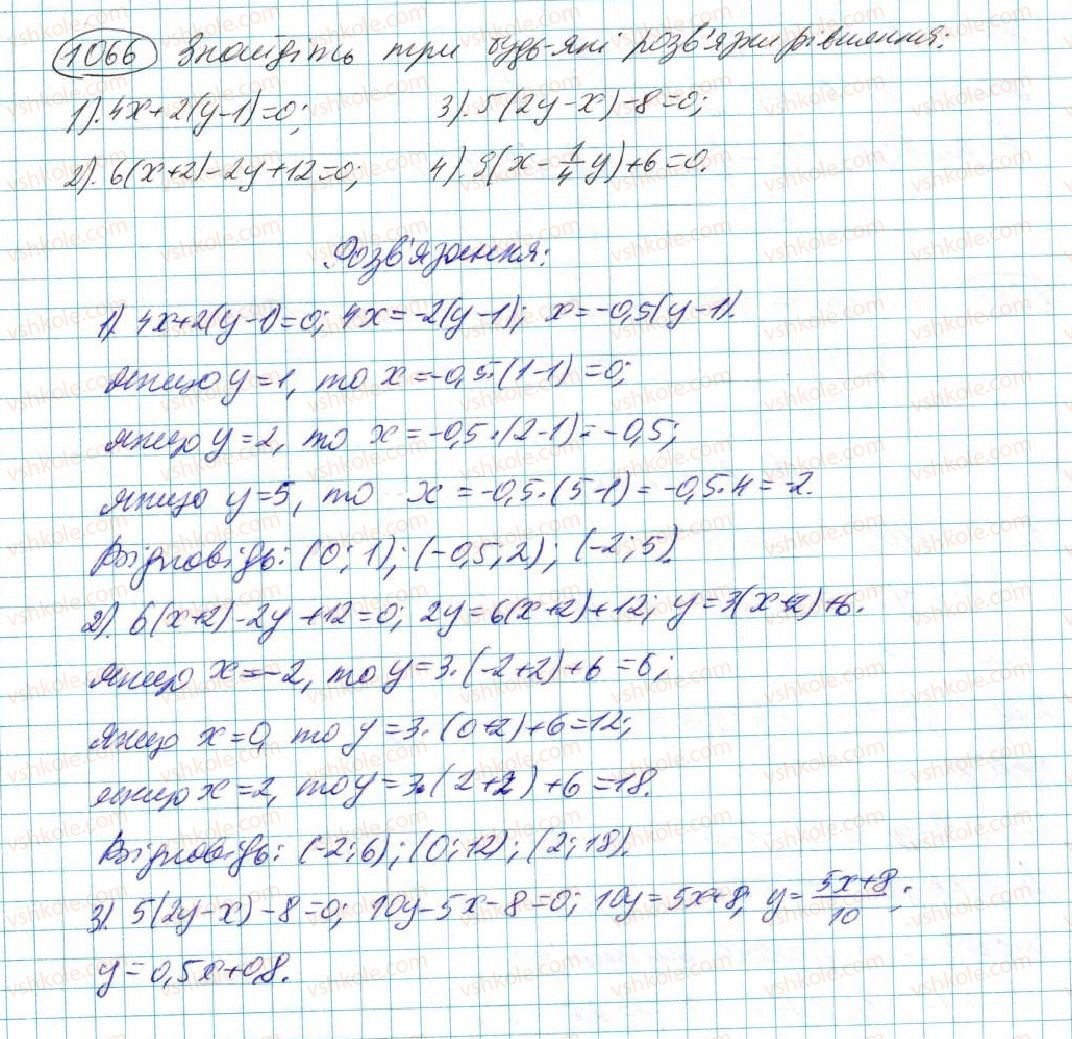 1066 Знайдіть три будь-які розв'язки рівняння:
1). 4x+2(y-1)=0; 3). 5(2y-x)-8=0;
2). 6(x+2)-2y+12=0; 4). 9(x-1/4y)+6=0.
Розв'язання:
1). 4x+2(y-1)=0; 4x=-2(y-1); x=-0,5(y-1).
якщо y=1, то x=-0,5·(1-1)=0;
якщо y=2, то x=-0,5·(2-1)=-0,5;
якщо y=5, то x=-0,5·(5-1)=-0,5·4=-2.
Відповідь: (0;1); (-0,5;2); (-2;5).
2). 6(x+2)-2y+12=0; 2y=6(x+2)+12; y=3(x+2)+6.
якщо x=-2, то y=3·(-2+2)+6=6;
якщо x=0, то y=3·(0+2)+6=12;
якщо x=2, то y=3·(2+2)+6=18.
Відповідь: (-2;6); (0;12); (2;18).
3). 5(2y-x)-8=0; 10y-5x-8=0; 10y=5x+8; y=(5x+8)/10;
y=0,5x+0,8.